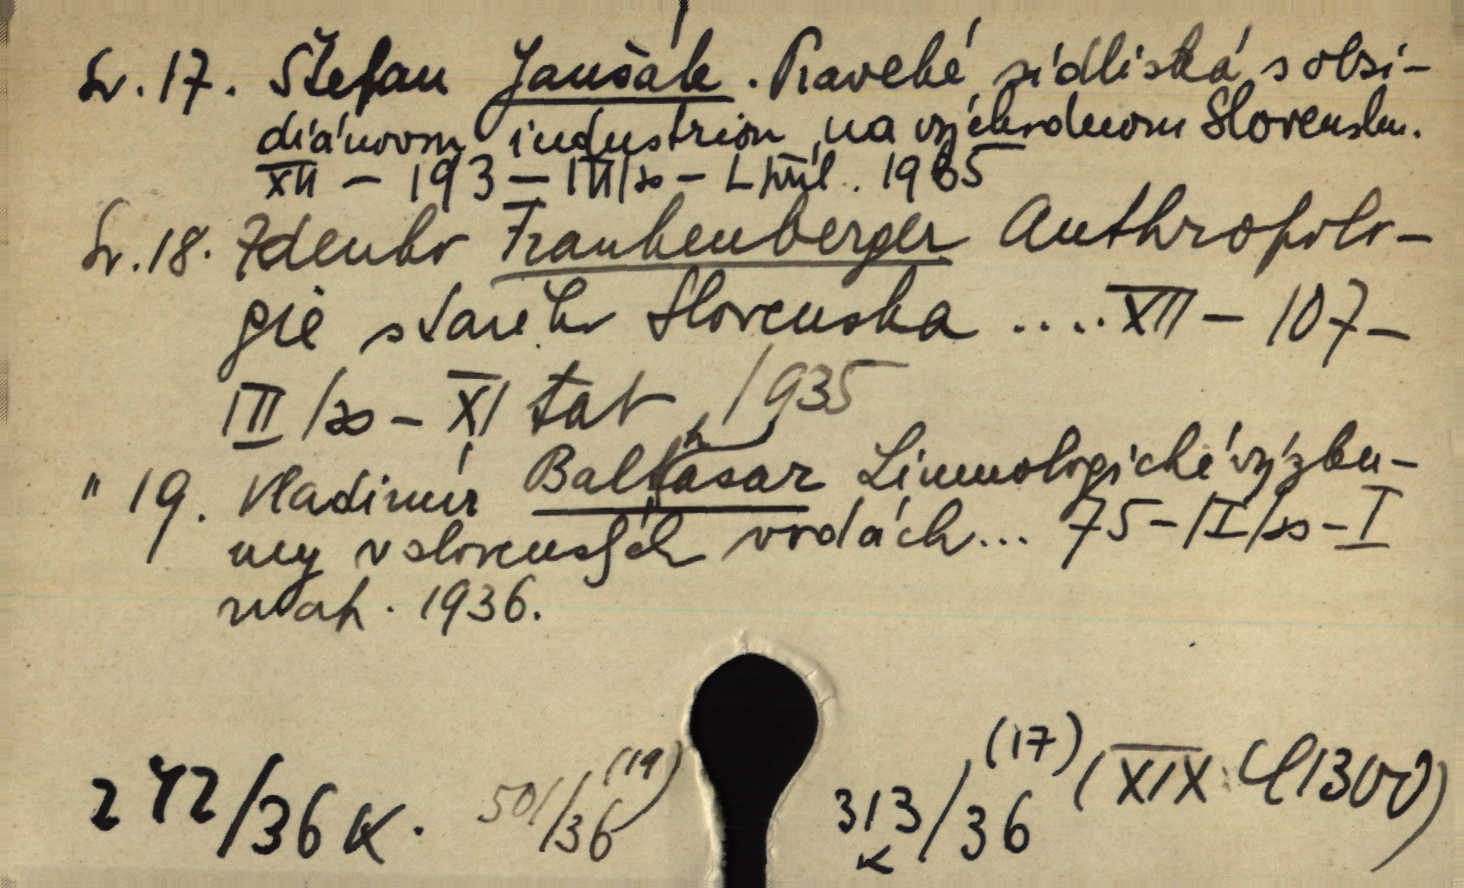 Sv. 17. Štefan Janšák. Praveké sídliská s obsi-
diánovou industriou na východnom Slovensku.
XII – 193 – III/xo – L príl. 1935
Sv. 18. Zdenko Frankenberger Anthropolo-
gie starého Slovenska .... XII – 107 –
III/xo – XI tab 1935
" 19. Vladimír Balthasar Limnologické výzku-
my v slovenských vodách... 75 – II/xo – I
map. 1936.
272/36 K. 501/36 (19) 313/36 (17) (XIX
K